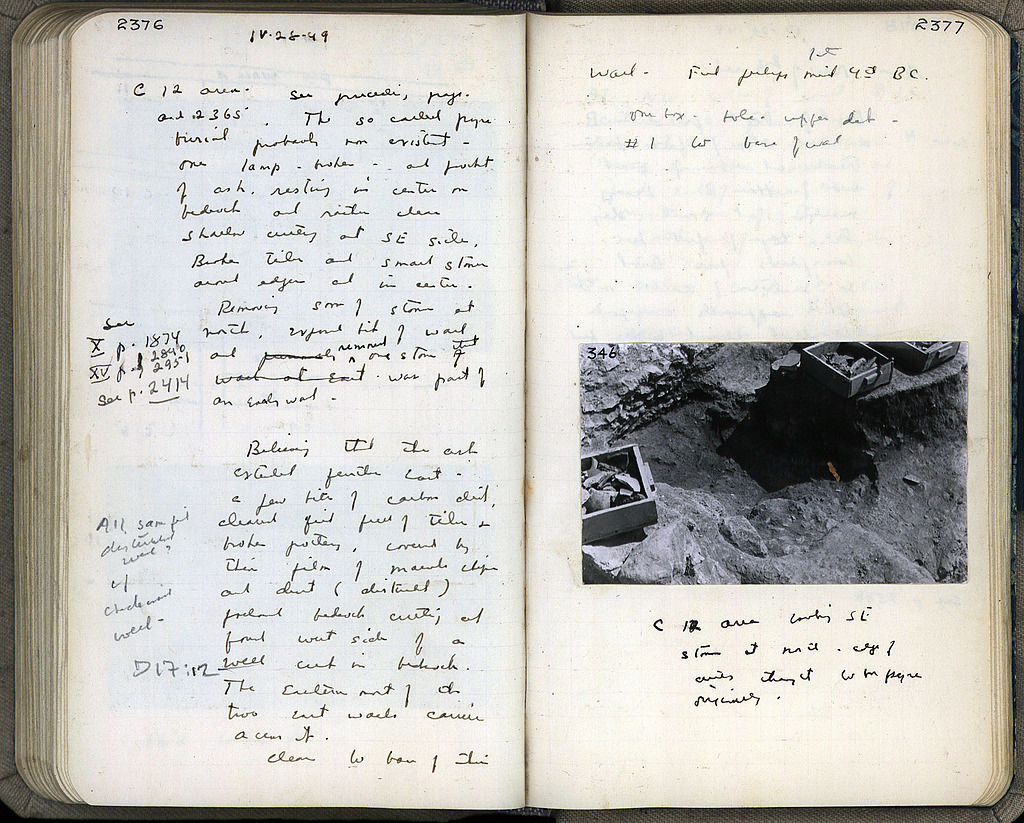 2376
IV-28-49
C 12 area. See preceding page.
and 2365. The so called pyre
burial probably non existent -
one lamp - broken - and pocket
of ash, resting in center on
bedrock and rather clear
shallow cutting at SE side.
Broken tiles and small stones
around edges and in center.
Removing some of stones at
north, exposed bit of wall
and removed one stone that
wall at East was part of
an early wall -
See
X p. 1874
XIV p. 2840
2951
See p. 2414
Believing that the ash
extended further East -
a few bits of carbon dust,
cleared first full of tiles &
broken pottery, covered by
thin film of marble chips
and dust (disturbed)
bedrock cutting and
found west side of a
well cut in bedrock.
The Eastern most of the
two East walls carries
across it.
Clear to base of this
All sample
disturbed
well?
w/
well-
D17:12
2377
1st
wall - Fill perhaps mid 4th BC.
one box tile - upper deb -
#1 to base of wall
346
C 12 area looking SE
stones at north - edge of
cutting thought to be pyre
originally.